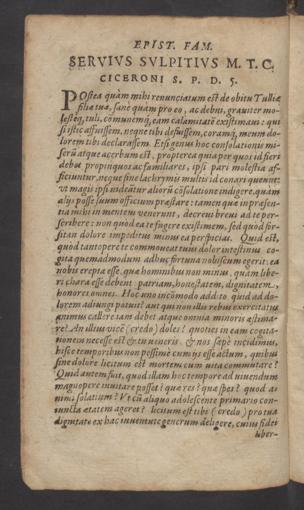 EPIST. FAM.
SERVIVS SVLPITIVS M. T. C.
CICERONI S. P. D. 5.
POstea quàm mihi renunciatum est de obitu Tulliæ
filiæ tuæ, sanè quàm pro eo, ac debui, grauiter mo-
lestéq; tuli, cōmunemq; eam calamitatē existimaui: qui
si istic affuissem, neque tibi defuissem, coramq; meum do-
lorem tibi declarassem. Etsi genus hoc consolationis mi-
serū atque acerbum est, propterea quia per quos id fieri
debet propinquos ac familiares, ipsi pari molestia af-
ficiuntur, neque sine lachrymis multis id conari queunt:
vt magis ipsi videātur aliorū cōsolatione indigere, quàm
alijs posse suum officium præstare: tamen quæ in præsen-
tia mihi in mentem venerunt, decreui breui ad te per-
scribere: non quòd ea te fugere existimem, sed quòd for-
sitan dolore impeditus minus ea perspicias. Quid est,
quòd tantopere te commoueat tuus dolor intestinus? co-
gita quemadmodum adhuc fortuna nobiscum egerit: ea
nobis erepta esse, quæ hominibus non minus, quàm libe-
ri chara esse debent, patriam, honestatem, dignitatem,
honores omnes. Hoc vno incōmodo addito quid ad do-
lorem adiungi potuit? aut qui non in illis rebus exercitatus
animus callere iam debet atque omnia minoris æstima-
re? An illius vicē (credo) doles? quoties in eam cogita-
tionem necesse est & tu veneris, & nos sæpè incidimus,
hisce temporibus non pessimè cum ijs esse actum, quibus
sine dolore licitum est mortem cum vita commutare?
Quid autem fuit, quod illam hoc tempore ad viuendum
magnopere inuitare posset? quæ res? quæ spes? quod a-
nimi solatium? Vt cū aliquo adolescente primario con-
iuncta ætatem ageret? licitum est tibi (credo) pro tua
dignitate ex hac iuuentute generum deligere, cuius fidei
liber-